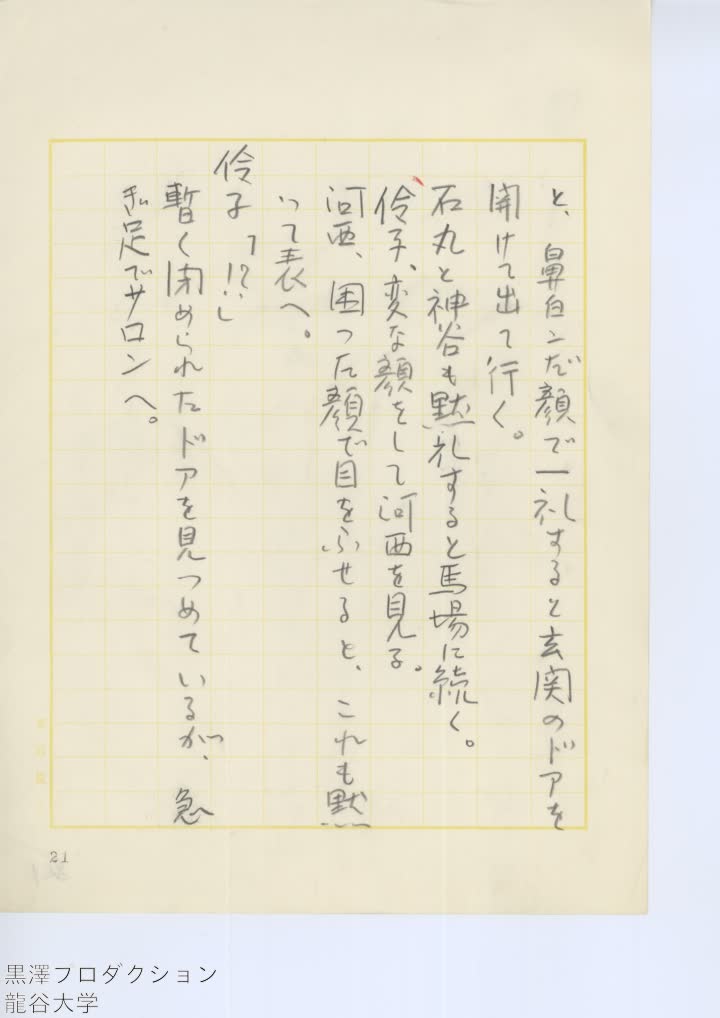 と、鼻白ンだ顔で一礼すると玄関のドアを
開けて出て行く。
石丸と神谷も黙礼すると馬場に続く。
伶子、変な顔をして河西を見る。
河西、困った顔で目をふせると、これも黙
って表へ。
伶子「!?‥」
暫く閉められたドアを見つめているが、急
ぎ足でサロンへ。
21
黒澤プロダクション
龍谷大学